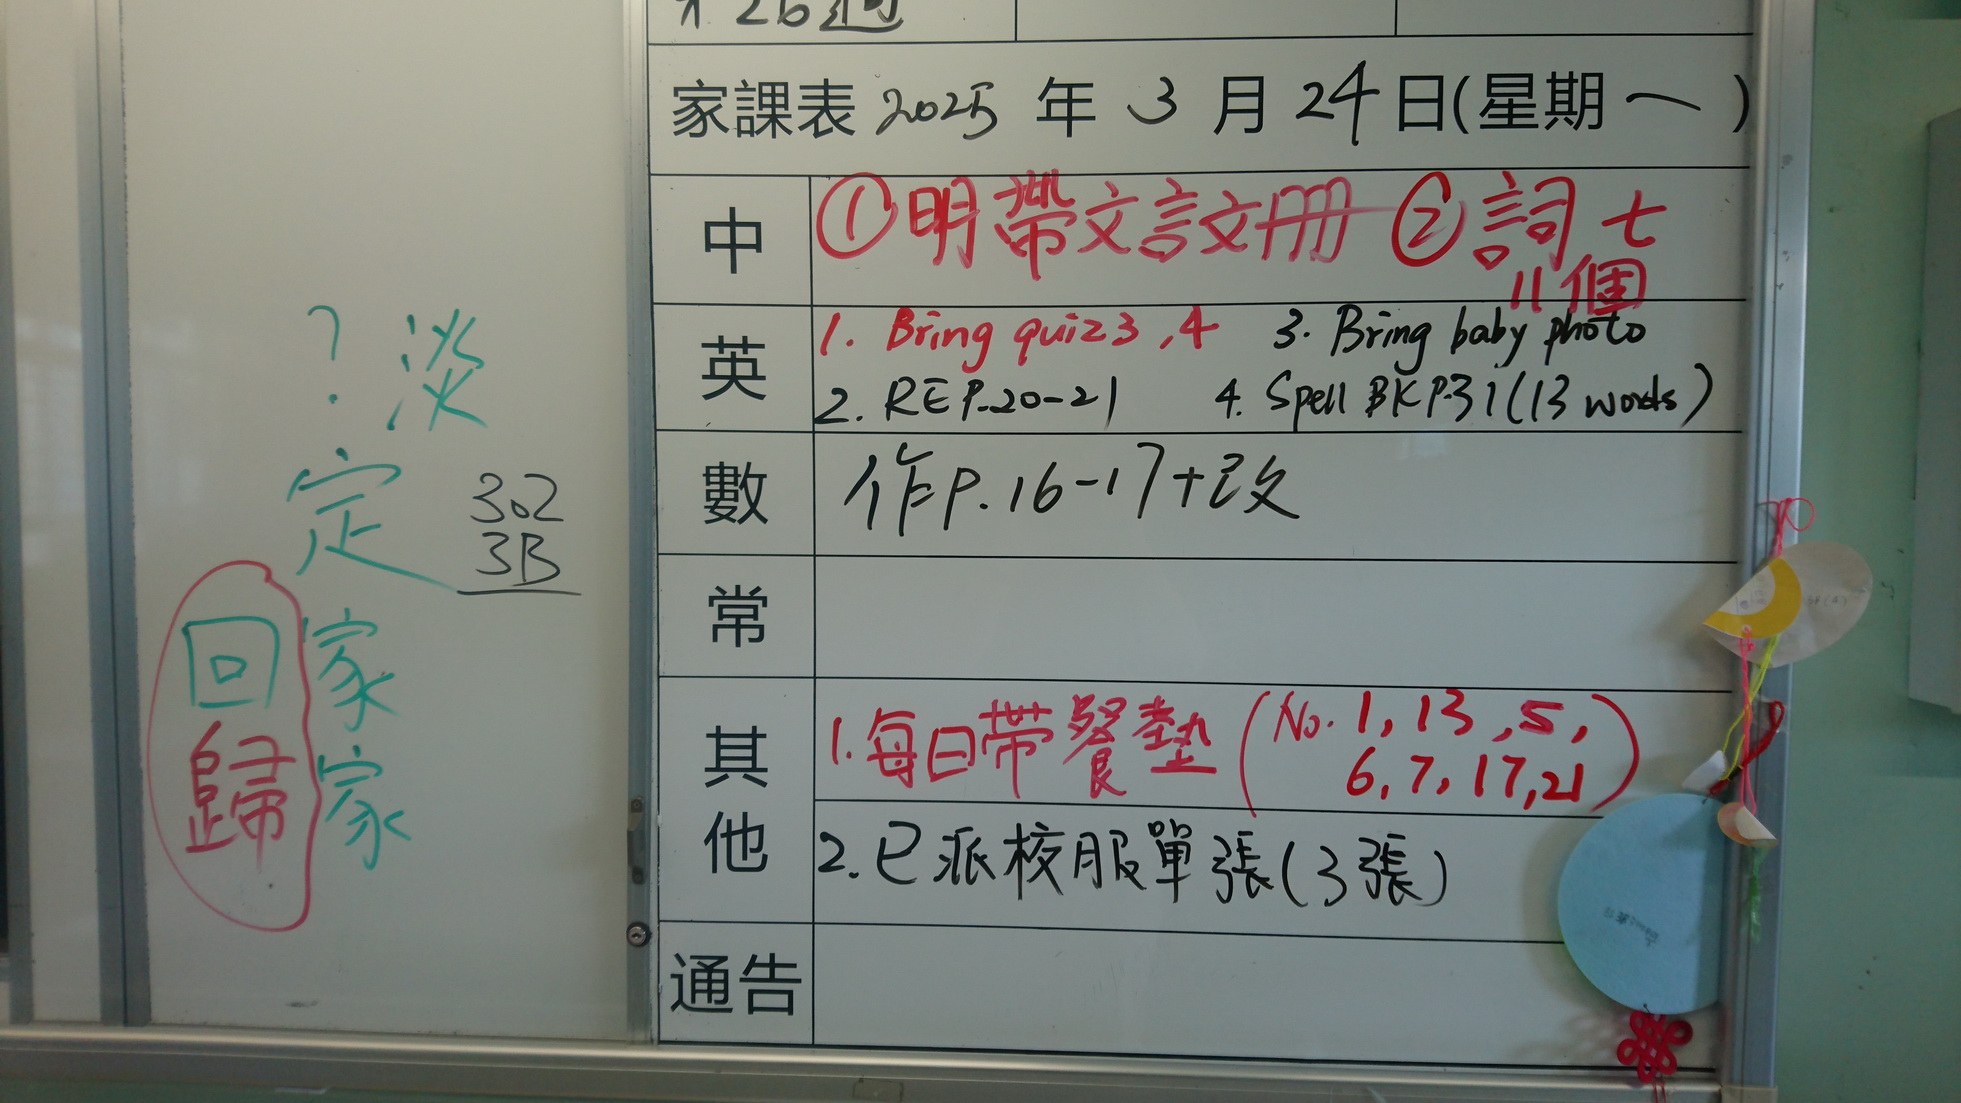 ?淡
定
302
3B
回家
歸家
26週
家課表 2025 年 3 月 24 日(星期一)
中
①明帶文言文冊 ②詞七
11個
英
1. Bring quiz 3, 4 3. Bring baby photo
2. RE P.20-21 4. Spell BK P.31 (13 words)
數
作 P.16-17+改
常
其他
1. 每日帶餐墊 (No. 1, 13, 5,
6, 7, 17, 21)
2. 已派校服單張(3張)
通告